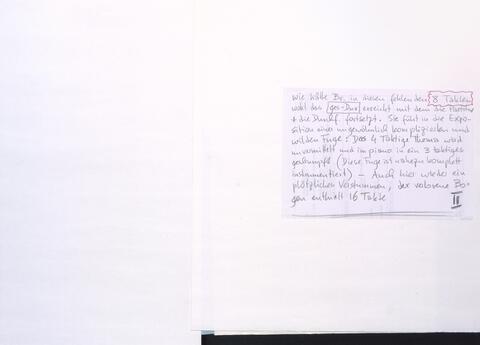 Wie hätte Br. in diesen fehlenden 8 Takten
wohl das Ges-Dur erreicht mit dem die Partitur
+ die Durchf. fortsetzt. Sie führt in die Expo-
sition einer ungewöhnlich komplizierten und
wilden Fuge: Das 4 Taktige Thema wird
unvermittelt und im piano in ein 3 taktiges
geschrumpft (Diese Fuge ist nahezu komplett
instrumentiert) – Auch hier wieder ein
plötzliches Verstummen, der verlorene Bo-
gen enthielt 16 Takte
II